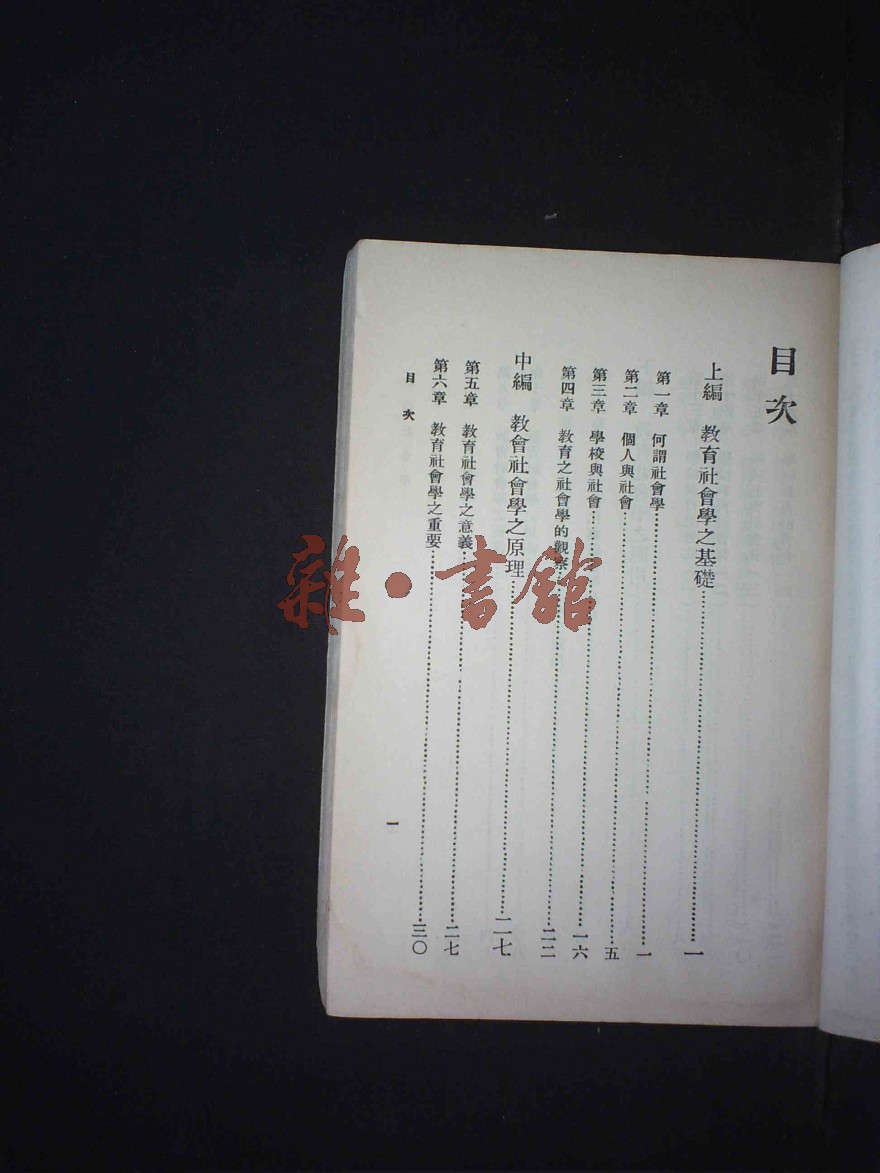 目次
上編 教育社會學之基礎……一
第一章 何謂社會學……一
第二章 個人與社會……五
第三章 學校與社會……一六
第四章 教育之社會學的觀察……二二
中編 教會社會學之原理……二七
第五章 教育社會學之意義……二七
第六章 教育社會學之重要……三〇
目次
一
雜·書館